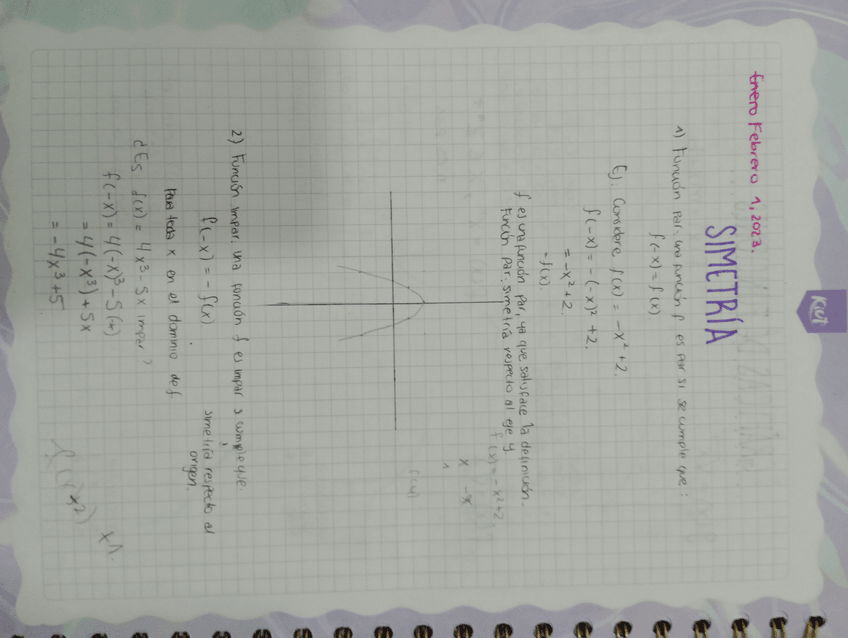 Enero Febrero 1, 2023.
SIMETRÍA
1) Función Par: una función f es par si se cumple que:
f(-x) = f(x)
Ej. Considere f(x) = -x² + 2.
f(-x) = -(-x)² + 2.
= -x² + 2.
= f(x).
f es una función par, ya que satisface la definición.
Función par: simetría respecto al eje y
f(x) = -x² + 2
x -x
2) Función Impar: una función f es impar s cumple que
f(-x) = -f(x)
simetría respecto al
origen.
Para toda x en el dominio de f
¿Es f(x) = 4x³ - 5x impar?
f(-x) = 4(-x)³ - 5(-x)
= 4(-x³) + 5x
= -4x³ + 5